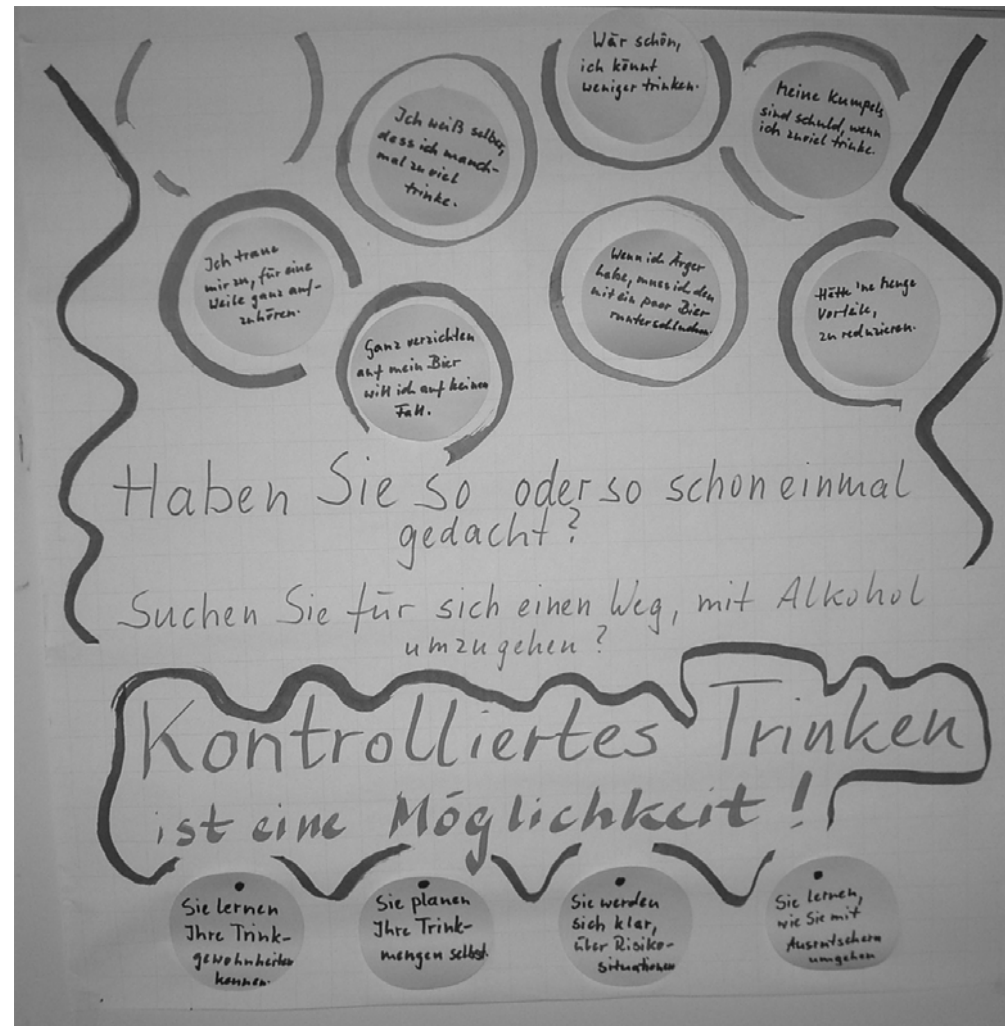 Wär schön,
ich könnt
weniger trinken.
Meine Kumpels
sind schuld, wenn
ich zuviel trinke.
Ich weiß selber,
dass ich manch-
mal zu viel
trinke.
Ich traue
mir zu, für eine
Weile ganz auf-
zuhören.
Wenn ich Ärger
habe, muss ich den
mit ein paar Bier
runterschlucken.
Hätte 'ne Menge
Vorteile,
zu reduzieren.
Ganz verzichten
auf mein Bier
will ich auf keinen
Fall.
Haben Sie so oder so schon einmal
gedacht?
Suchen Sie für sich einen Weg, mit Alkohol
umzugehen?
Kontrolliertes Trinken
ist eine Möglichkeit!
Sie lernen
Ihre Trink-
gewohnheiten
kennen.
Sie planen
Ihre Trink-
mengen selbst.
Sie werden
sich klar,
über Risiko-
situationen
Sie lernen,
wie Sie mit
Ausrutschern
umgehen